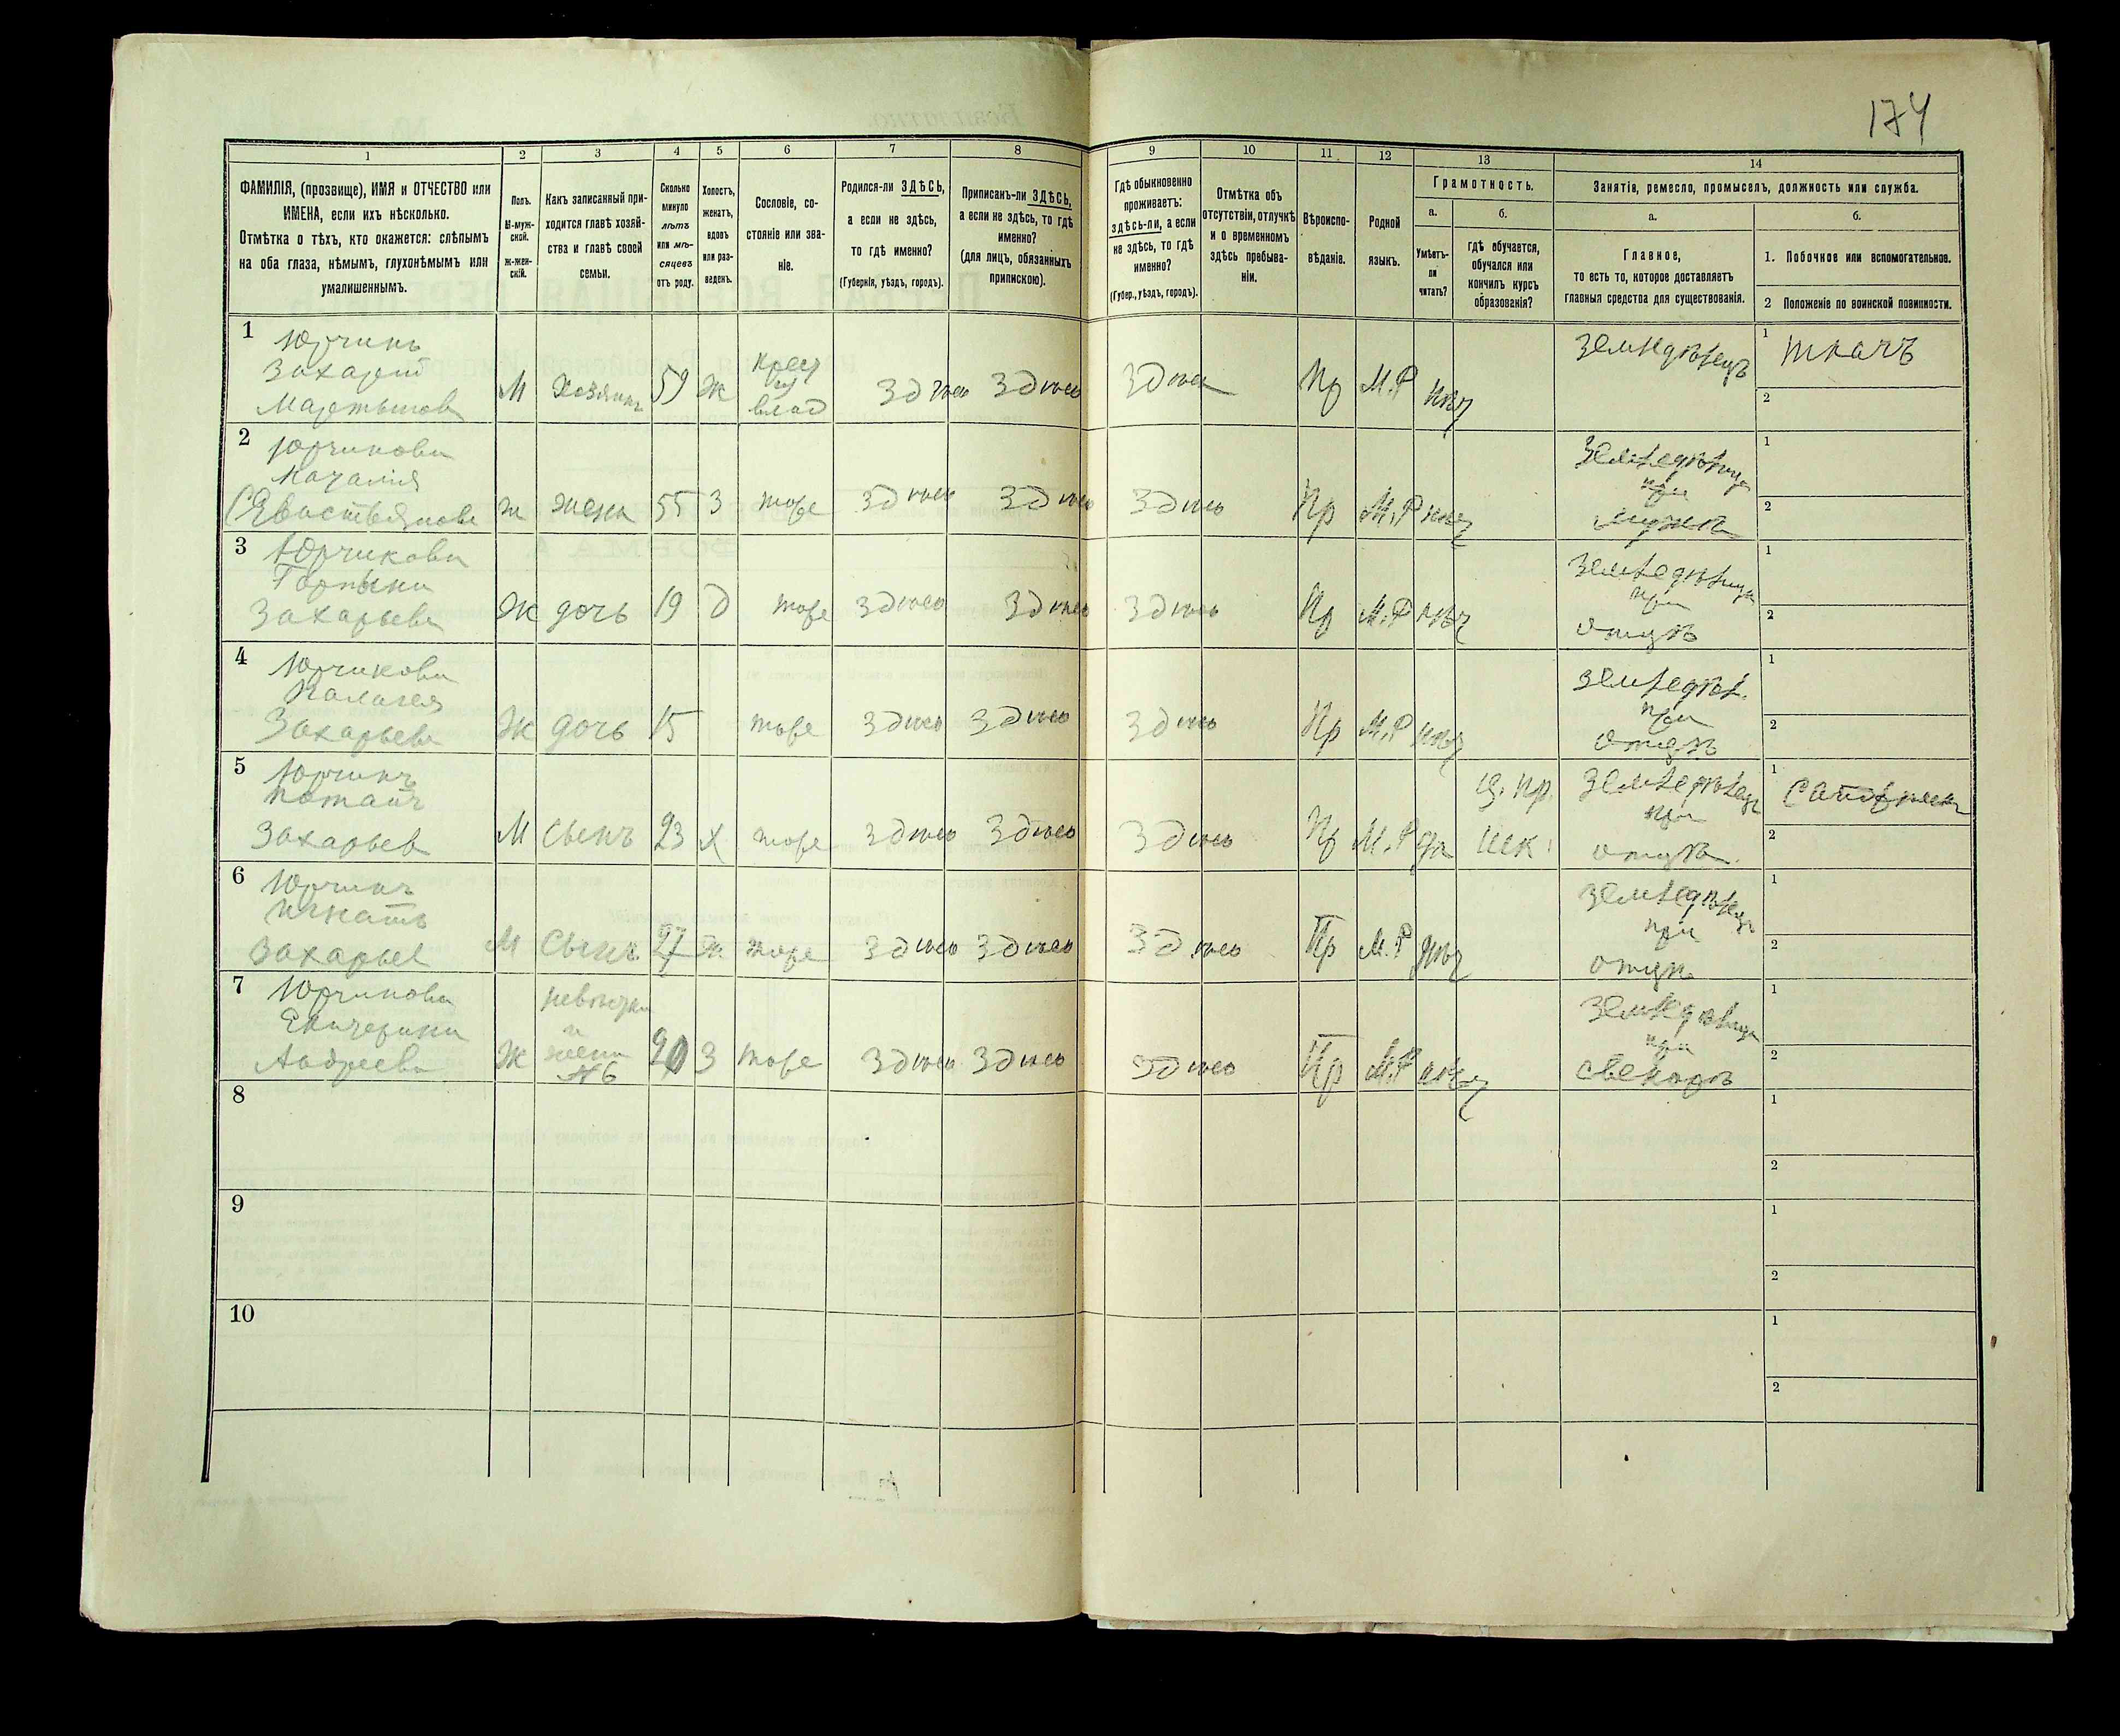 174
1
2
3
4
5
6
7
8
9
10
11
12
13
14
ФАМИЛІЯ, (прозвище), ИМЯ и ОТЧЕСТВО или
ИМЕНА, если ихъ нѣсколько.
Отмѣтка о тѣхъ, кто окажется: слѣпымъ
на оба глаза, нѣмымъ, глухонѣмымъ или
умалишеннымъ.
Полъ.
М-муж-
ской.
Ж-жен-
скій.
Какъ записанный при-
ходится главѣ хозяй-
ства и главѣ своей
семьи.
Сколько
минуло
лѣтъ
или мѣ-
сяцевъ
отъ роду.
Холостъ,
женатъ,
вдовъ
или раз-
веденъ.
Сословіе, со-
стояніе или зва-
ніе.
Родился-ли ЗДѢСЬ,
а если не здѣсь,
то гдѣ именно?
(Губернія, уѣздъ, городъ).
Приписанъ-ли ЗДѢСЬ,
а если не здѣсь, то гдѣ
именно?
(для лицъ, обязанныхъ
припискою).
Гдѣ обыкновенно
проживаетъ:
здѣсь-ли, а если
не здѣсь, то гдѣ
именно?
(Губер., уѣздъ, городъ).
Отмѣтка объ
отсутствіи, отлучкѣ
и о временномъ
здѣсь пребыва-
ніи.
Вѣроиспо-
вѣданіе.
Родной
языкъ.
Грамотность.
а.
Умѣетъ-
ли
читать?
б.
гдѣ обучается,
обучался или
кончилъ курсъ
образованія?
Занятія, ремесло, промыселъ, должность или служба.
а.
Главное,
то есть то, которое доставляетъ
главныя средства для существованія.
б.
1. Побочное или вспомогательное.
2 Положеніе по воинской повинности.
1
Юрчинъ
Захарій
М Хозяинъ 59 Ж
Крес
влад
Здѣсь Здѣсь Здѣсь Пр М.Р нѣт
Земледѣлецъ
1 ткачъ
2
2 Юрчикова
Наталия
Ж жена 55 З тоже Здѣсь Здѣсь Здѣсь Пр М.Р нѣт
при
1
2
3 Юрчикова
Горпына
Захарьева
Ж дочь 19 д тоже Здѣсь Здѣсь Здѣсь Пр М.Р нѣт
при
отцѣ
1
2
4 Юрчикова
Палагея
Захарьева
Ж дочь 15 тоже Здѣсь Здѣсь Здѣсь Пр М.Р нѣт
Земледѣл.
при
отцѣ
1
2
5 Юрчинъ
Потапъ
Захарьев
М сынъ 23 Х тоже Здѣсь Здѣсь Здѣсь Пр М.Р да
Ц. пр.
шк.
Земледѣлецъ
при
отцѣ
1 Сапожникъ
2
6 Юрчинъ
Игнатъ
Захарьев
М сынъ 27 Ж тоже Здѣсь Здѣсь Здѣсь Пр М.Р нѣт
Земледѣлецъ
при
отцѣ
1
2
7 Юрчикова
Екатерина
Андреева
Ж
невѣстка
и
жена
№6
З тоже Здѣсь Здѣсь Здѣсь Пр М.Р нѣт
при
свекорѣ
1
2
8
1
2
9
1
2
10
1
2